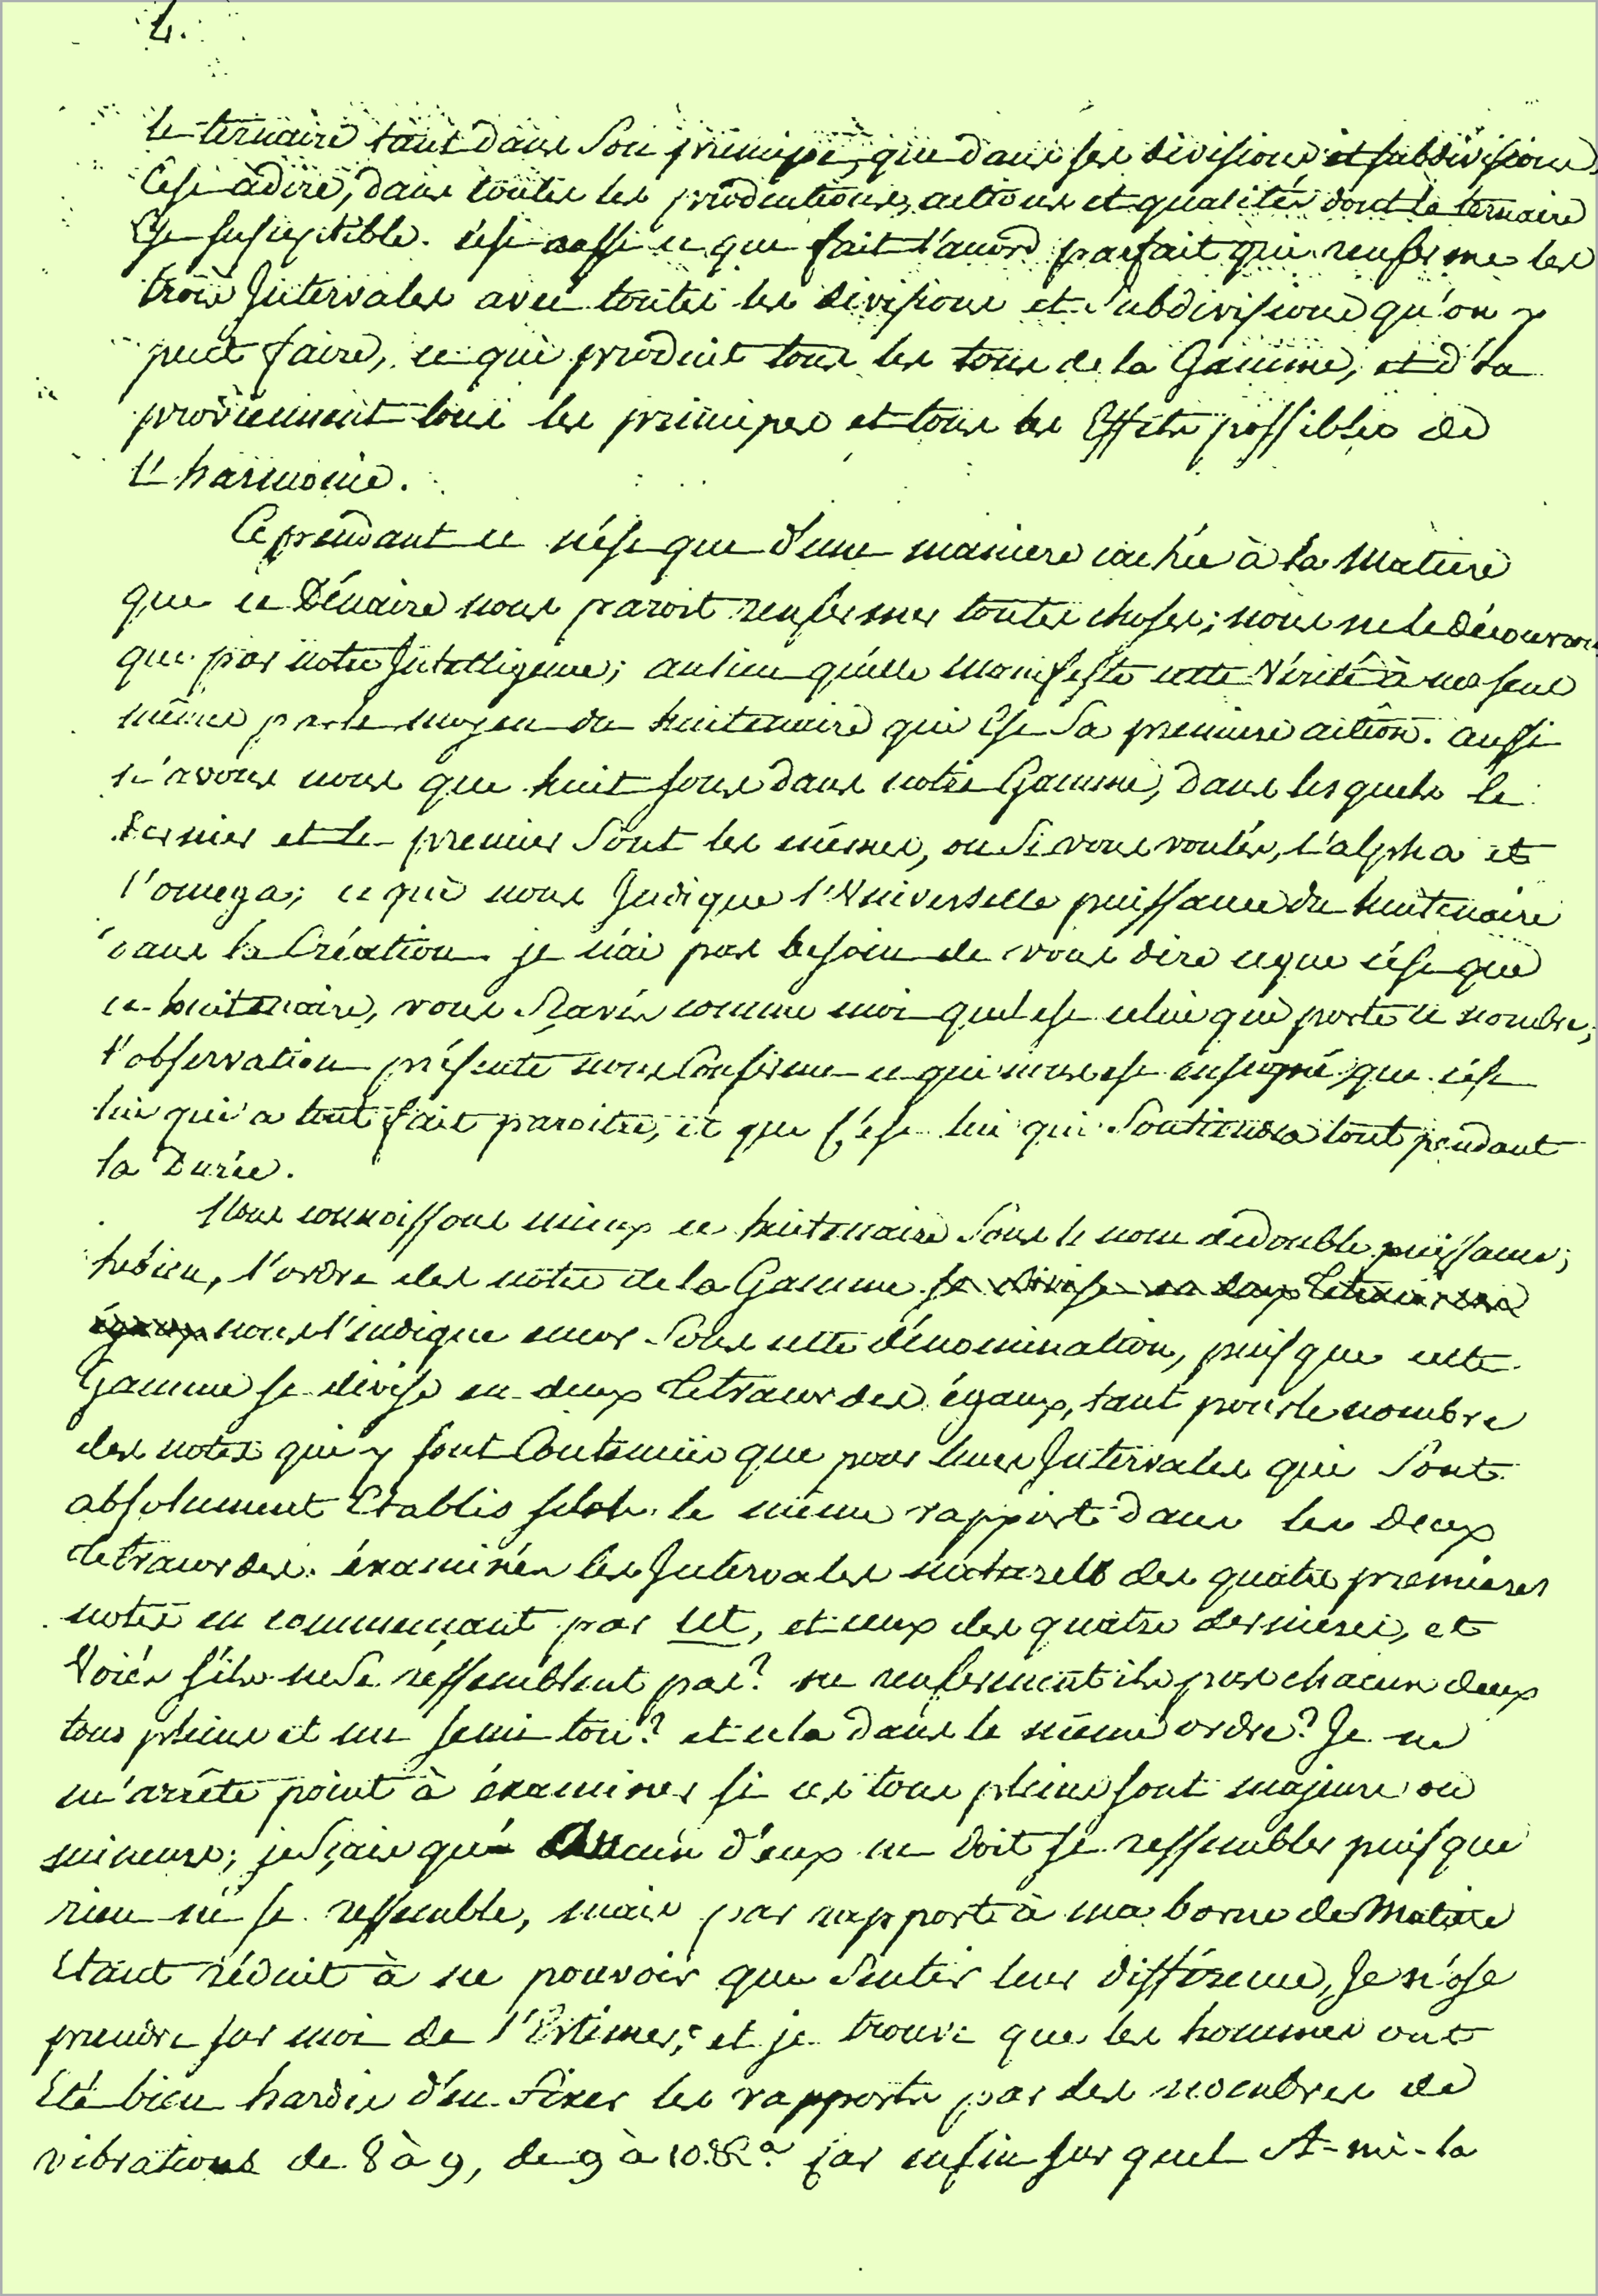 4.
le ternaire tant dans Son principe, que dans ses divisions et subdivisions,
C'est à dire, dans toutes les productions, actions et qualités dont le ternaire
Est susceptible. c'est aussi ce que fait l'acord parfait qui renferme les
trois Intervales avec toutes les divisions et Subdivisions qu'on y
peut faire, ce qui produit tous les tons de la Gamme, et d'la
proviennent tous les principes et tous les Effets possibles de
L'harmonie.
Ce prendant ce n'est que d'une maniere cachée à la Matiere
que ce Dénaire nous paroit renfermer toutes choses; nous ne le découvrons
que par notre Intelligence; au lieu qu'elle manifeste cette Vérité à nos sens
même par le moyen du huitenaire qui Est Sa premiere action. aussi
n'avons nous que huit sons dans notre Gamme, dans lesquels le
dernier et le premier Sont les mêmes, ou Si vous voulés, l'alpha et
l'omega; ce qui nous Indique l'Universelle puissance du huitenaire
dans la Création. je n'ai pas besoin de vous dire ce que c'est que
ce huitenaire, vous Sçavés comme moi quel est celui qui porte ce nombre;
l'observation présente nous Confirme ce qui nous est enseigné, que c'est
lui qui a tout fait paroitre, et que c'est lui qui Soutiendra tout pendant
la Durée.
Nous connoissons mieux ce huitenaire Sous le nom de double puissance;
hébien, l'ordre des notes de la Gamme se divise en deux
égaux nous l'indique encor Sous cette dénomination, puisque cette
Gamme se divise en deux tetracordes égaux, tant pour le nombre
des notes qui y sont Contenües que pour leurs Intervales qui Sont
absolument Etablis selon le même rapport dans les deux
tetracordes. éxaminés les Intervales naturels des quatre premieres
notes en commençant par ut, et ceux des quatre dernieres, et
Voiés s'ils ne Se ressemblent pas? ne renferment ils pas chacun deux
tons pleins et un semi ton? et cela dans le même ordre? Je ne
m'arrête point à éxaminer si ces tons pleins sont majeurs ou
mineurs; je Sçais qu' aucun d'eux ne doit se ressembler puisque
rien ne se ressemble, mais par rapport à ma borne de Matiere
Etant réduit à ne pouvoir que Sentir leur différence, Je n'ose
prendre sur moi de l'Estimer; et je trouve que les hommes ont
Eté bien hardis d'en Fixer les rapports par des nombres de
vibrations de 8 à 9, de 9 à 10. &c.a car enfin sur quel A-mi-la